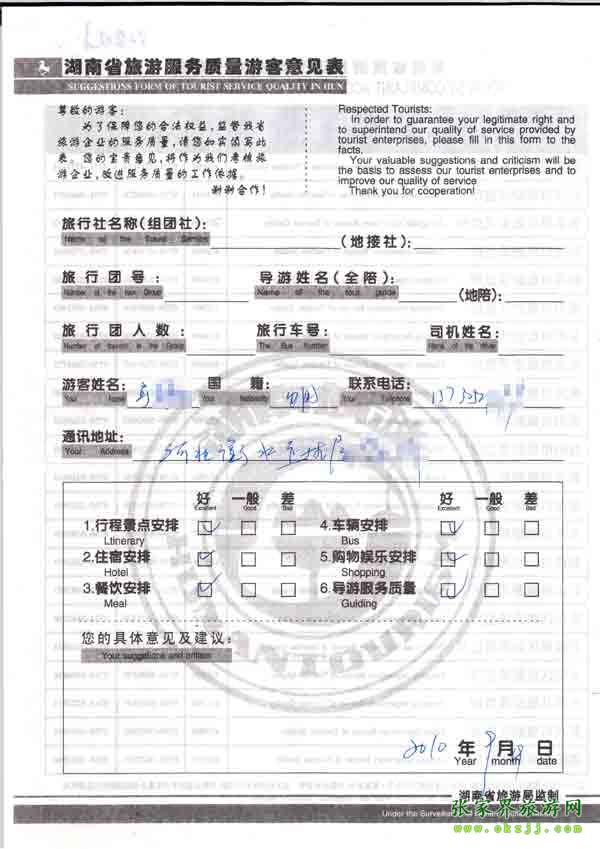 湖南省旅游服务质量游客意见表
SUGGESTIONS FORM OF TOURIST SERVICE QUALITY IN HUN
尊敬的游客:
为了保障您的合法权益,监督我省
旅游企业的服务质量,请您如实填写此
表。您的宝贵意见,将作为我们考核旅
游企业,改进服务质量的工作依据。
谢谢合作!
Respected Tourists:
In order to guarantee your legitimate right and
to superintend our quality of service provided by
tourist enterprises, please fill in this form to the
facts.
Your valuable suggestions and criticism will be
the basis to assess our tourist enterprises and to
improve our quality of service
Thank you for cooperation!
旅行社名称(组团社): (地接社):
Name of the Tourist Service
旅行团号: 导游姓名(全陪): (地陪):
Number of the tour Group Name of the tour guide
旅行团人数: 旅行车号: 司机姓名:
Number of travelers in the Group The Bus Number Name of the driver
游客姓名: 国籍: 中国 联系电话: 137
Your Name Your Nationality Your Telephone
通讯地址: 河北衡水
Your Address
好 一般 差 好 一般 差
Excellent Good Bad Excellent Good Bad
1.行程景点安排 4.车辆安排
Ltinerary Bus
2.住宿安排 5.购物娱乐安排
Hotel Shopping
3.餐饮安排 6.导游服务质量
Meal Guiding
您的具体意见及建议:
Your suggetions and critism
2010 年 9 月 日
Year month date
湖南省旅游局监制
Under the Surveillance
张家界旅游网
www.okzjj.com